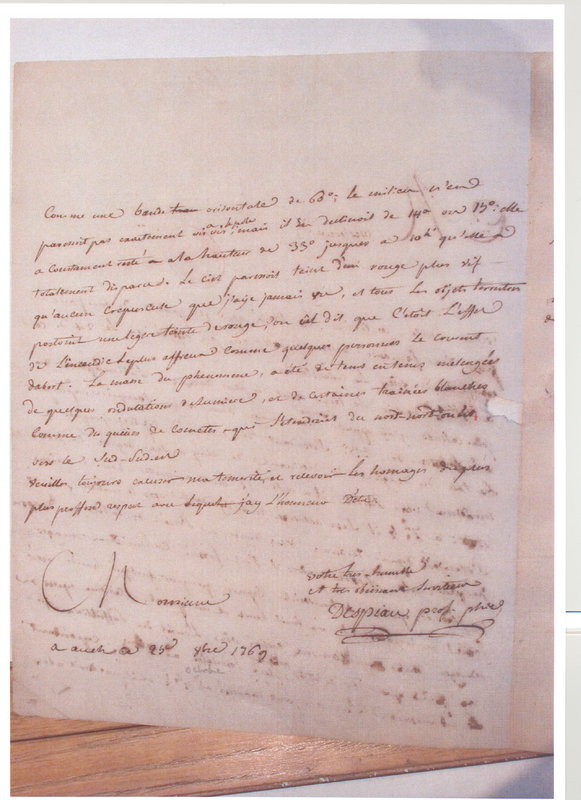 Comme une bande orisontale de 60°; le milieu n'en
paroissit pas exactement vis a vis le pole, mais il declinoit de 14° ou 15°: elle
a constament resté a la hauteur de 35° jusques a 10h qu'elle a
totalement disparu. Le ciel paroissoit teint d'un rouge plus vif
qu'aucun crepuscule que j'aije jamais vu, et tous les objets terrestres
portoint une legere teinte de rouge, on eût dit que c'étoit l'effet
de l'incendie le plus affreux comme quelques personnes le crurent
dabort. La masse du phenomene, a été de tems en tems melangée
de quelques ondulations de lumiere, et de certaines trainées blanches
comme des queües de cometes qui s'etendoient du nort-nort-ouest
vers le Sud-Sud-est
veuilles toujours excuser ma temerité, et recevoir les homages du plus
plus proffond respect avec lequel j'ay l'honneur d'etre
Monsieur
votre tres humble
et tres obeissant serviteur
Despiau prof. phie
a auch ce 25e 8bre 1769